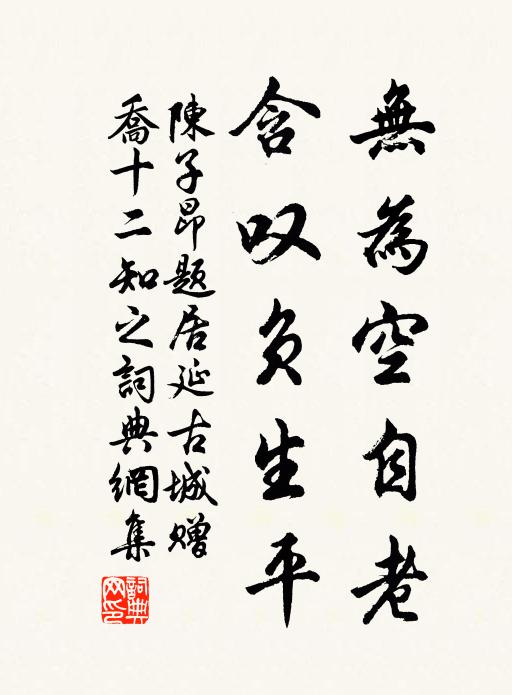 無為空自老
含叹负生平
陳子昂题居延古城赠
喬十二知之詞典網集
詞典网印